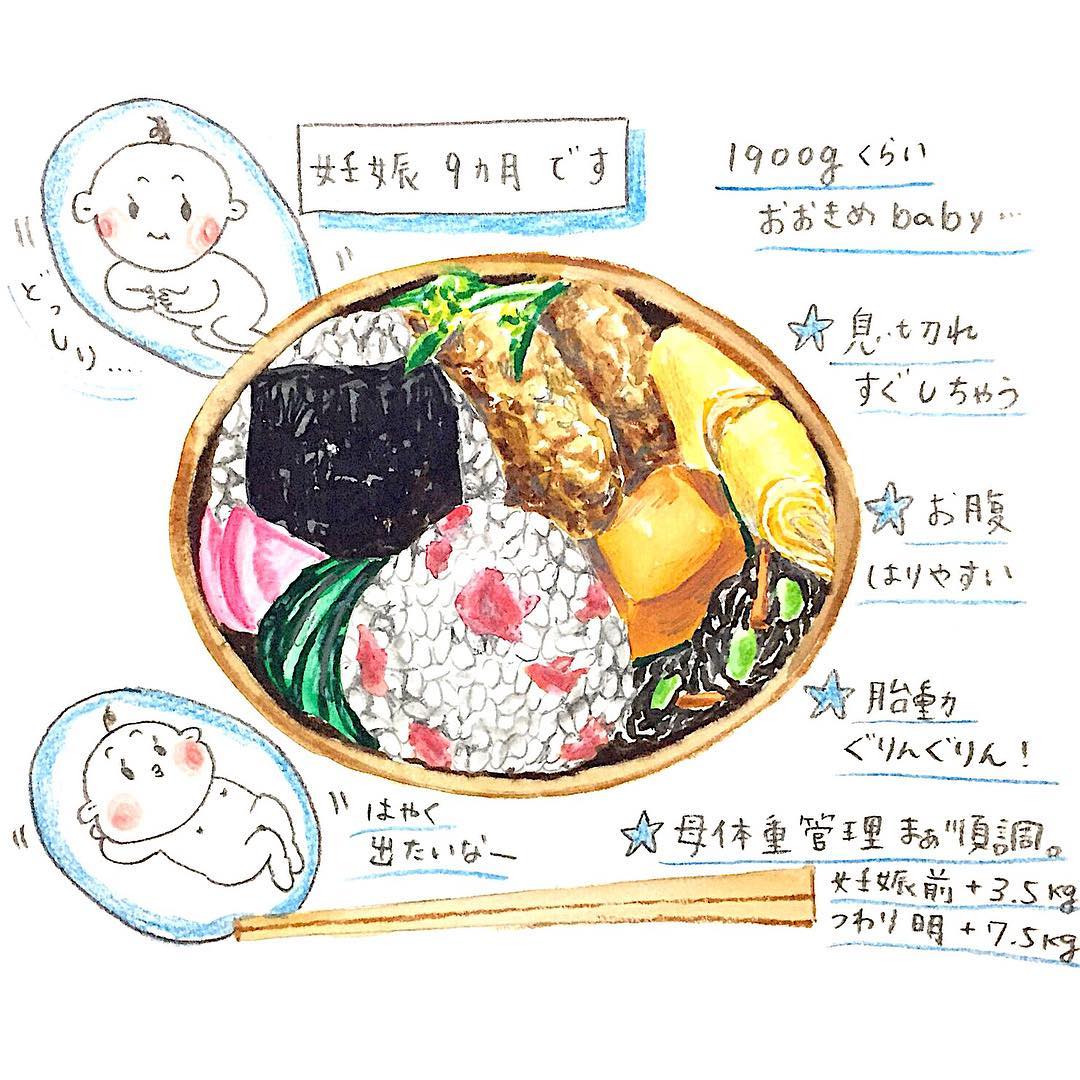 妊娠 9ヵ月 です
1900g くらい
おおきめ baby…
どっしり....
☆息切れ
すぐしちゃう
☆お腹
はりやすい
☆胎動
ぐりんぐりん!
はやく
出たいなー
☆母体重管理 まぁ順調。
妊娠前+3.5kg
つわり明+7.5kg